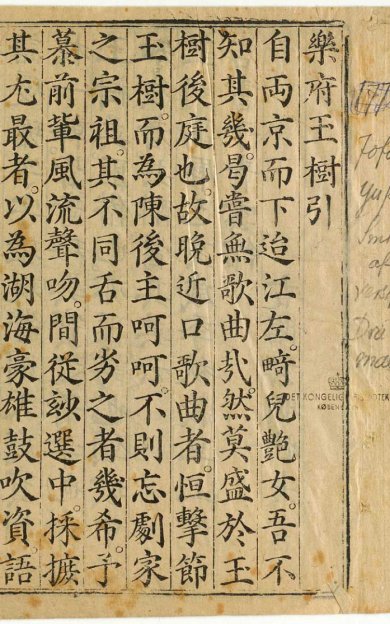 樂府玉樹引
自両京而下迨江左。畸兒艶女。吾不
知其幾。曷嘗無歌曲㢤。然莫盛於玉
樹後庭也。故晚近口歌曲者。恒擊節
玉樹。而為陳後主呵呵。不則忘劇家
之宗祖。其不同舌而劣之者幾希。予
慕前軰風流聲吻。間從
選中。採摭
其尤最者。以為湖海豪雄鼓吹資。語
DET KONGELIGE
KØBENH